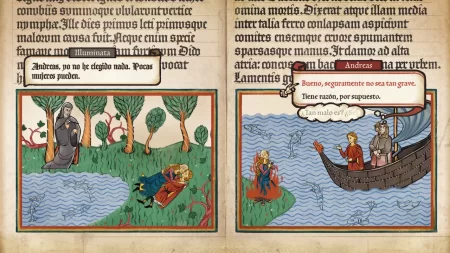 conubiis summoque ulularunt vertice
nymphae. Ille dies primus leti primusque
malorum causa fuit. Neque enim specie
famave
Dido
vocat
Illuminata
Andreas, yo no he elegido nada. Pocas
mujeres pueden.
atque illam media
inter talia ferro conlapsam aspiciunt
comites ensemque cruore spumantem
sparsasque manus. It clamor ad alta
atria:
per urbem.
Lamentis
Andreas
Bueno, seguramente no sea tan grave.
Tiene razón, por supuesto.
tan malo es